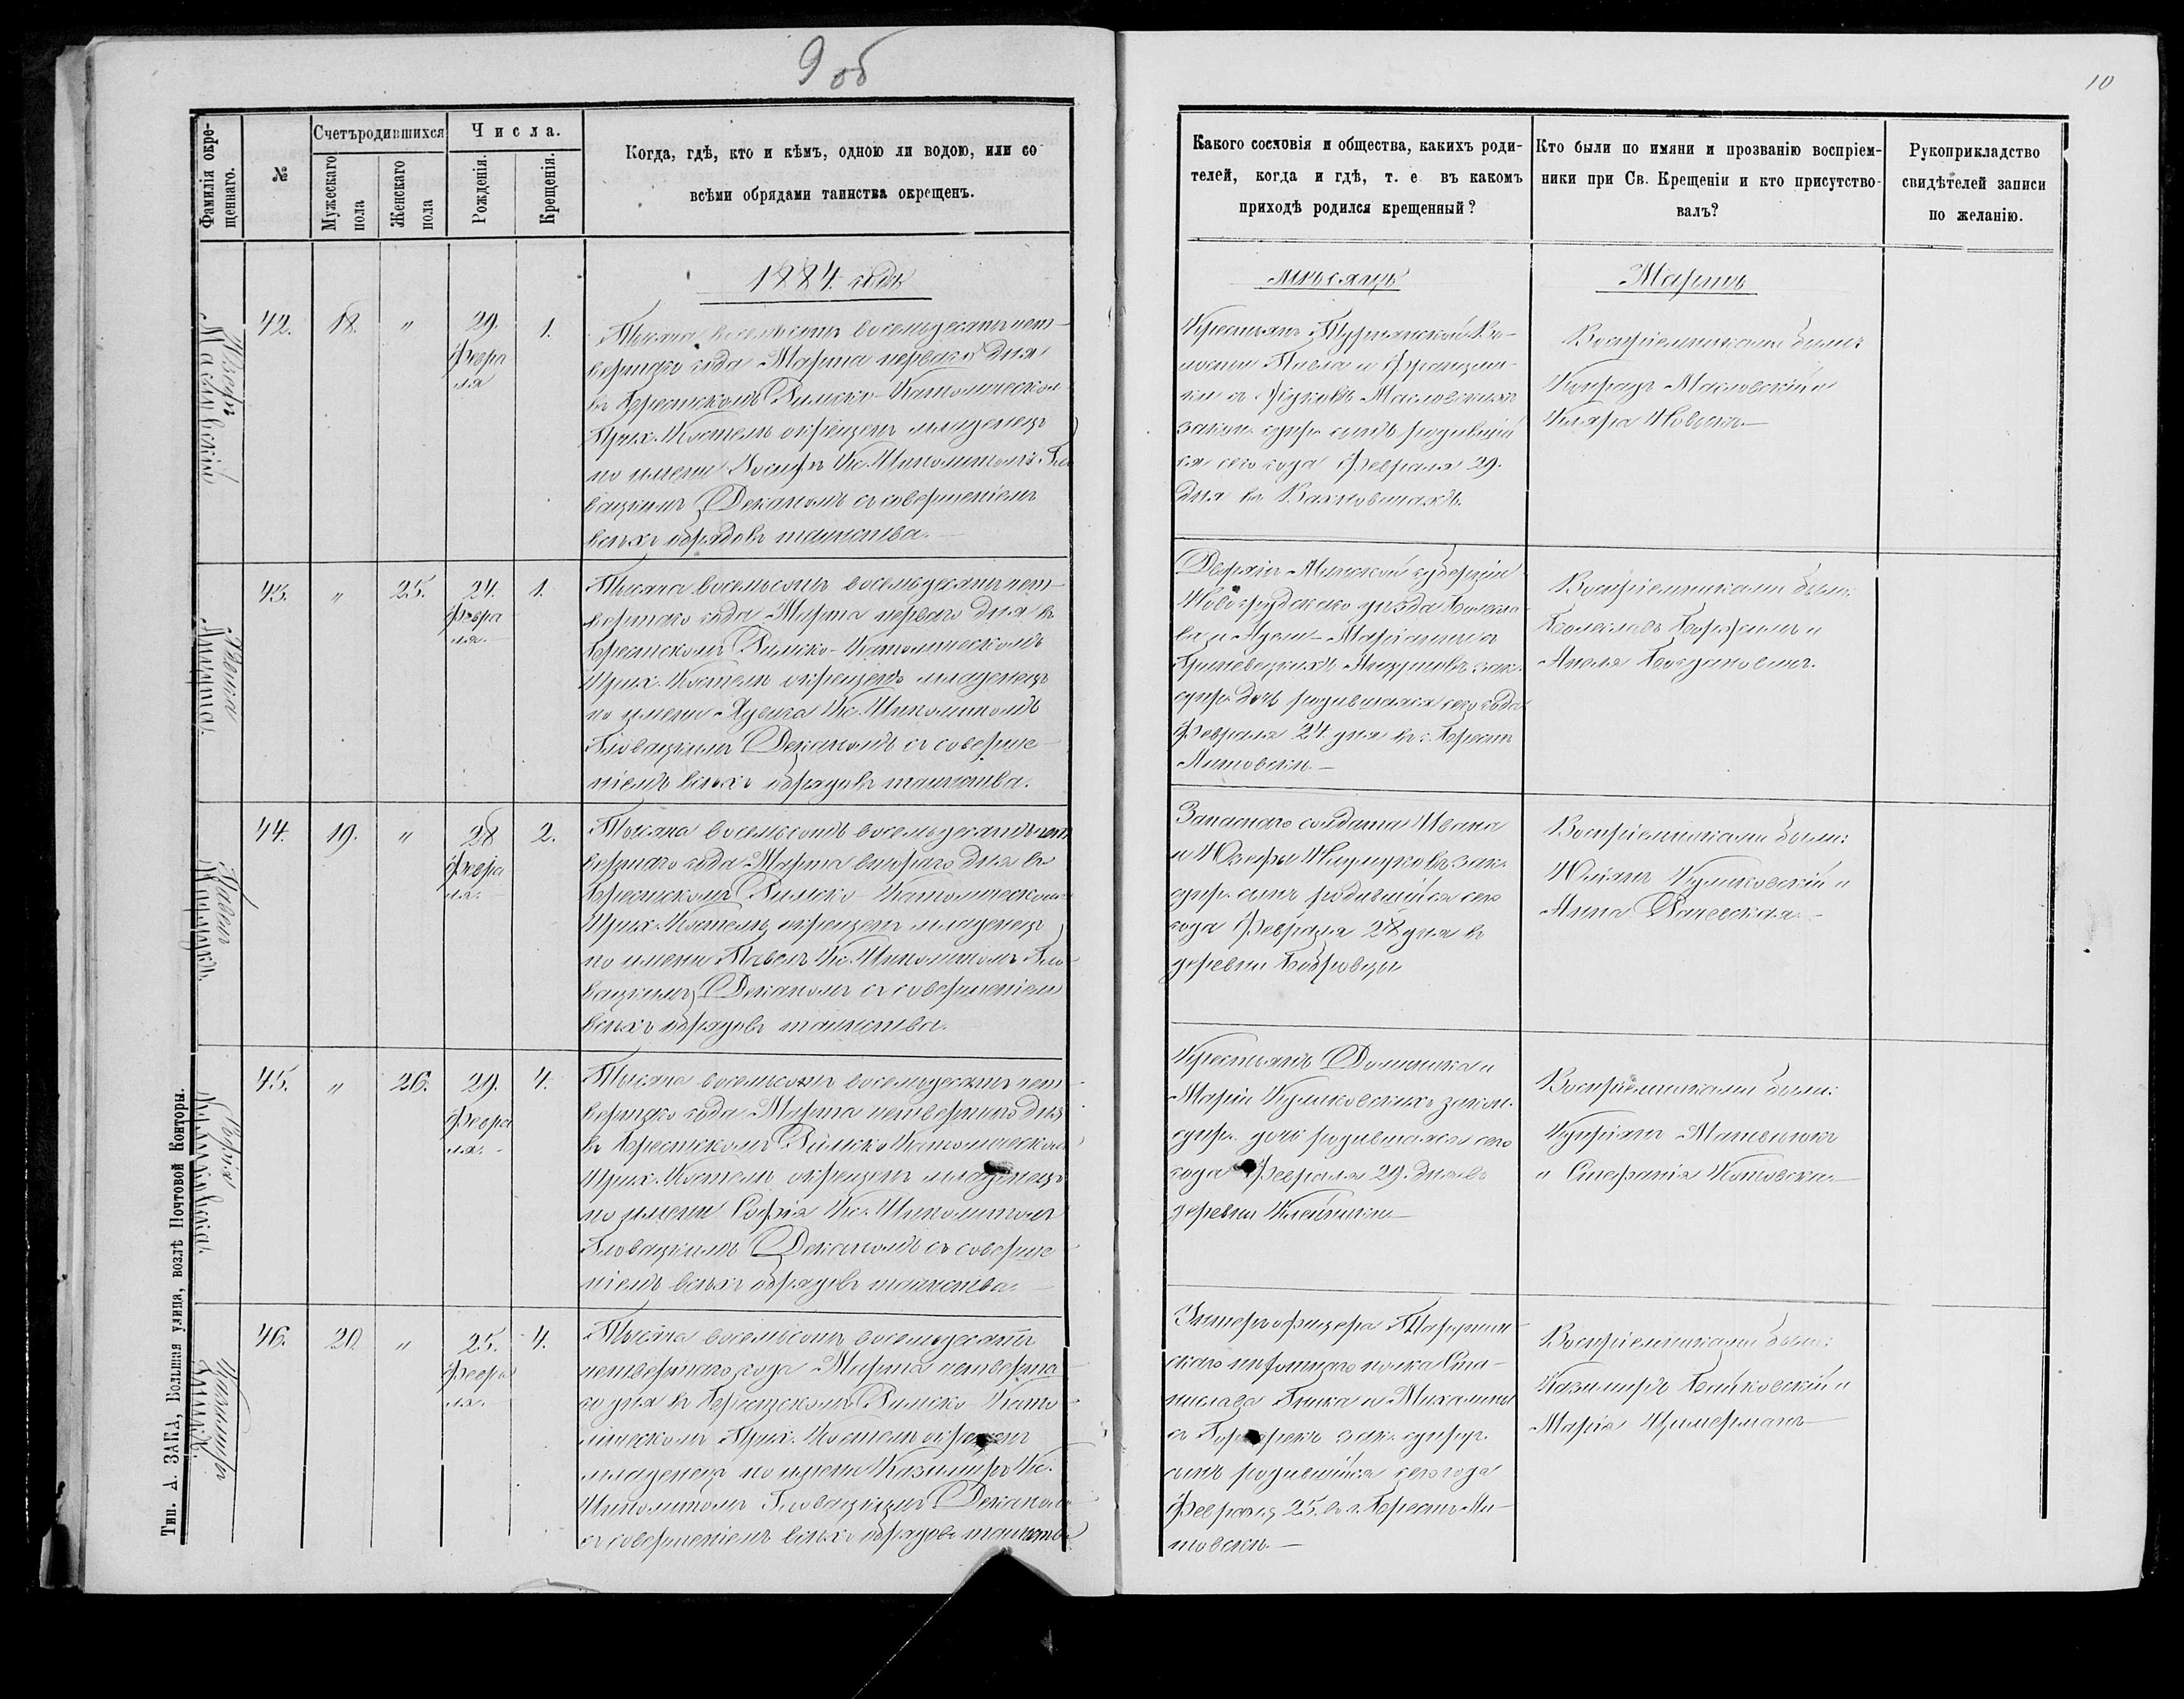 9 об
10
Фамилія окре-
щеннаго.
№
Счетъ родившихся
Мужескаго
пола
Женскаго
пола
Числа.
Рожденія.
Крещенія.
Когда, гдѣ, кто и кѣмъ, одною ли водою, или со
всѣми обрядами таинства окрещенъ.
Какого сословія и общества, какихъ роди-
телей, когда и гдѣ, т. е. въ какомъ
приходѣ родился крещенный?
Кто были по имяни и прозванію воспріем-
ники при Св. Крещеніи и кто присутство-
валъ?
Рукоприкладство
свидѣтелей записи
по желанію.
1884. года
мѣсяцъ
Мартъ
Іосифъ
Масловскій
42.
18.
"
29.
Февра
ля
1.
Тысяча восемьсотъ восемьдесятъ чет-
вертаго года Марта перваго дня
въ Брестскомъ Римско-Католическом
Прих. Костелѣ окрещенъ младенецъ
по имени Іосифъ Кс. Ипполитомъ Гло
вацкимъ Деканомъ съ совершеніемъ
всѣхъ обрядовъ таинства.
Крестьянъ Турнянской Во-
лости Павла и Францишки
съ Жуковъ Масловскихъ
закон. супр. сынъ родившій
ся сего года Февраля 29.
дня въ Вахновичахъ.
Воспріемниками были:
Конрадъ Масловскій и
Клара Новокъ.
43.
"
25.
24.
Февра
ля.
1.
Тысяча восемьсотъ восемьдесятъ чет-
вертаго года Марта перваго дня въ
Брестскомъ Римско-Католическомъ
Прих. Костелѣ окрещенъ младенецъ
по имени Ядвига Кс. Ипполитомъ
Гловацкимъ Деканомъ съ соверше-
ніемъ всѣхъ обрядовъ таинства.
Дворянъ Минской губерніи
Новогрудскаго уѣзда
Адели-Маріанны съ
зак.
супр. дочь родившаяся сего года
Февраля 24 дня въ г. Брестъ
Литовскѣ.
Воспріемниками были:
Болеславъ и
Анеля Богдановичъ.
Павелъ
44.
19.
"
28
Февра
ля.
2.
Тысяча восемьсотъ восемьдесятъ чет
вертаго года Марта втораго дня въ
Брестскомъ Римско-Католическомъ
Прих. Костелѣ окрещенъ младенецъ
по имени Павелъ Кс. Ипполитомъ Гло-
вацкимъ Деканомъ съ совершеніем
всѣхъ обрядовъ таинства.
Запаснаго солдата Ивана
и Юзефы зак.
супр. сынъ родившійся сего
года Февраля 28 дня въ
деревни Бобровцы
Воспріемниками были:
Юліанъ Куликовскій и
Анна Рачевская.
Софія
Куликовская.
45.
"
26.
29.
Февра
ля.
4.
Тысяча восемьсотъ восемьдесятъ чет-
вертаго года Марта четвертаго дня
въ Брестскомъ Римско Католическом
Прих. Костелѣ окрещенъ младенецъ
по имени Софія Кс. Ипполитом
Гловацкимъ Деканомъ съ соверше
ніемъ всѣхъ обрядовъ таинства.
Крестьянъ Доминика и
Маріи Куликовскихъ закон.
супр. дочь родившаяся сего
года Февраля 29. дня въ
деревни Клейники
Воспріемниками были:
Купріянъ
и Стефанія Котовская
Казиміръ
46.
20.
"
25.
Февра
ля.
4.
Тысяча восемьсотъ восемьдесятъ
четвертаго года Марта четверта
го дня въ Брестскомъ Римско Като-
лическомъ Прих. Костелѣ окрещенъ
младенецъ по имени Казиміръ Кс.
Ипполитомъ Гловацкимъ Деканомъ
съ совершеніемъ всѣхъ обрядовъ таинства
Унтерофицера
пѣхотнаго полка Ста-
нислава и Михалины
съ зак. супр.
сынъ родившійся сего года
Февраля 25. въ г. Брестъ Ли-
товскѣ.
Воспріемниками были:
Казиміръ Байковскій и
Марія Цимерманъ
Тип. А. ЗАКА, Большая улица, возлѣ Почтовой Конторы.